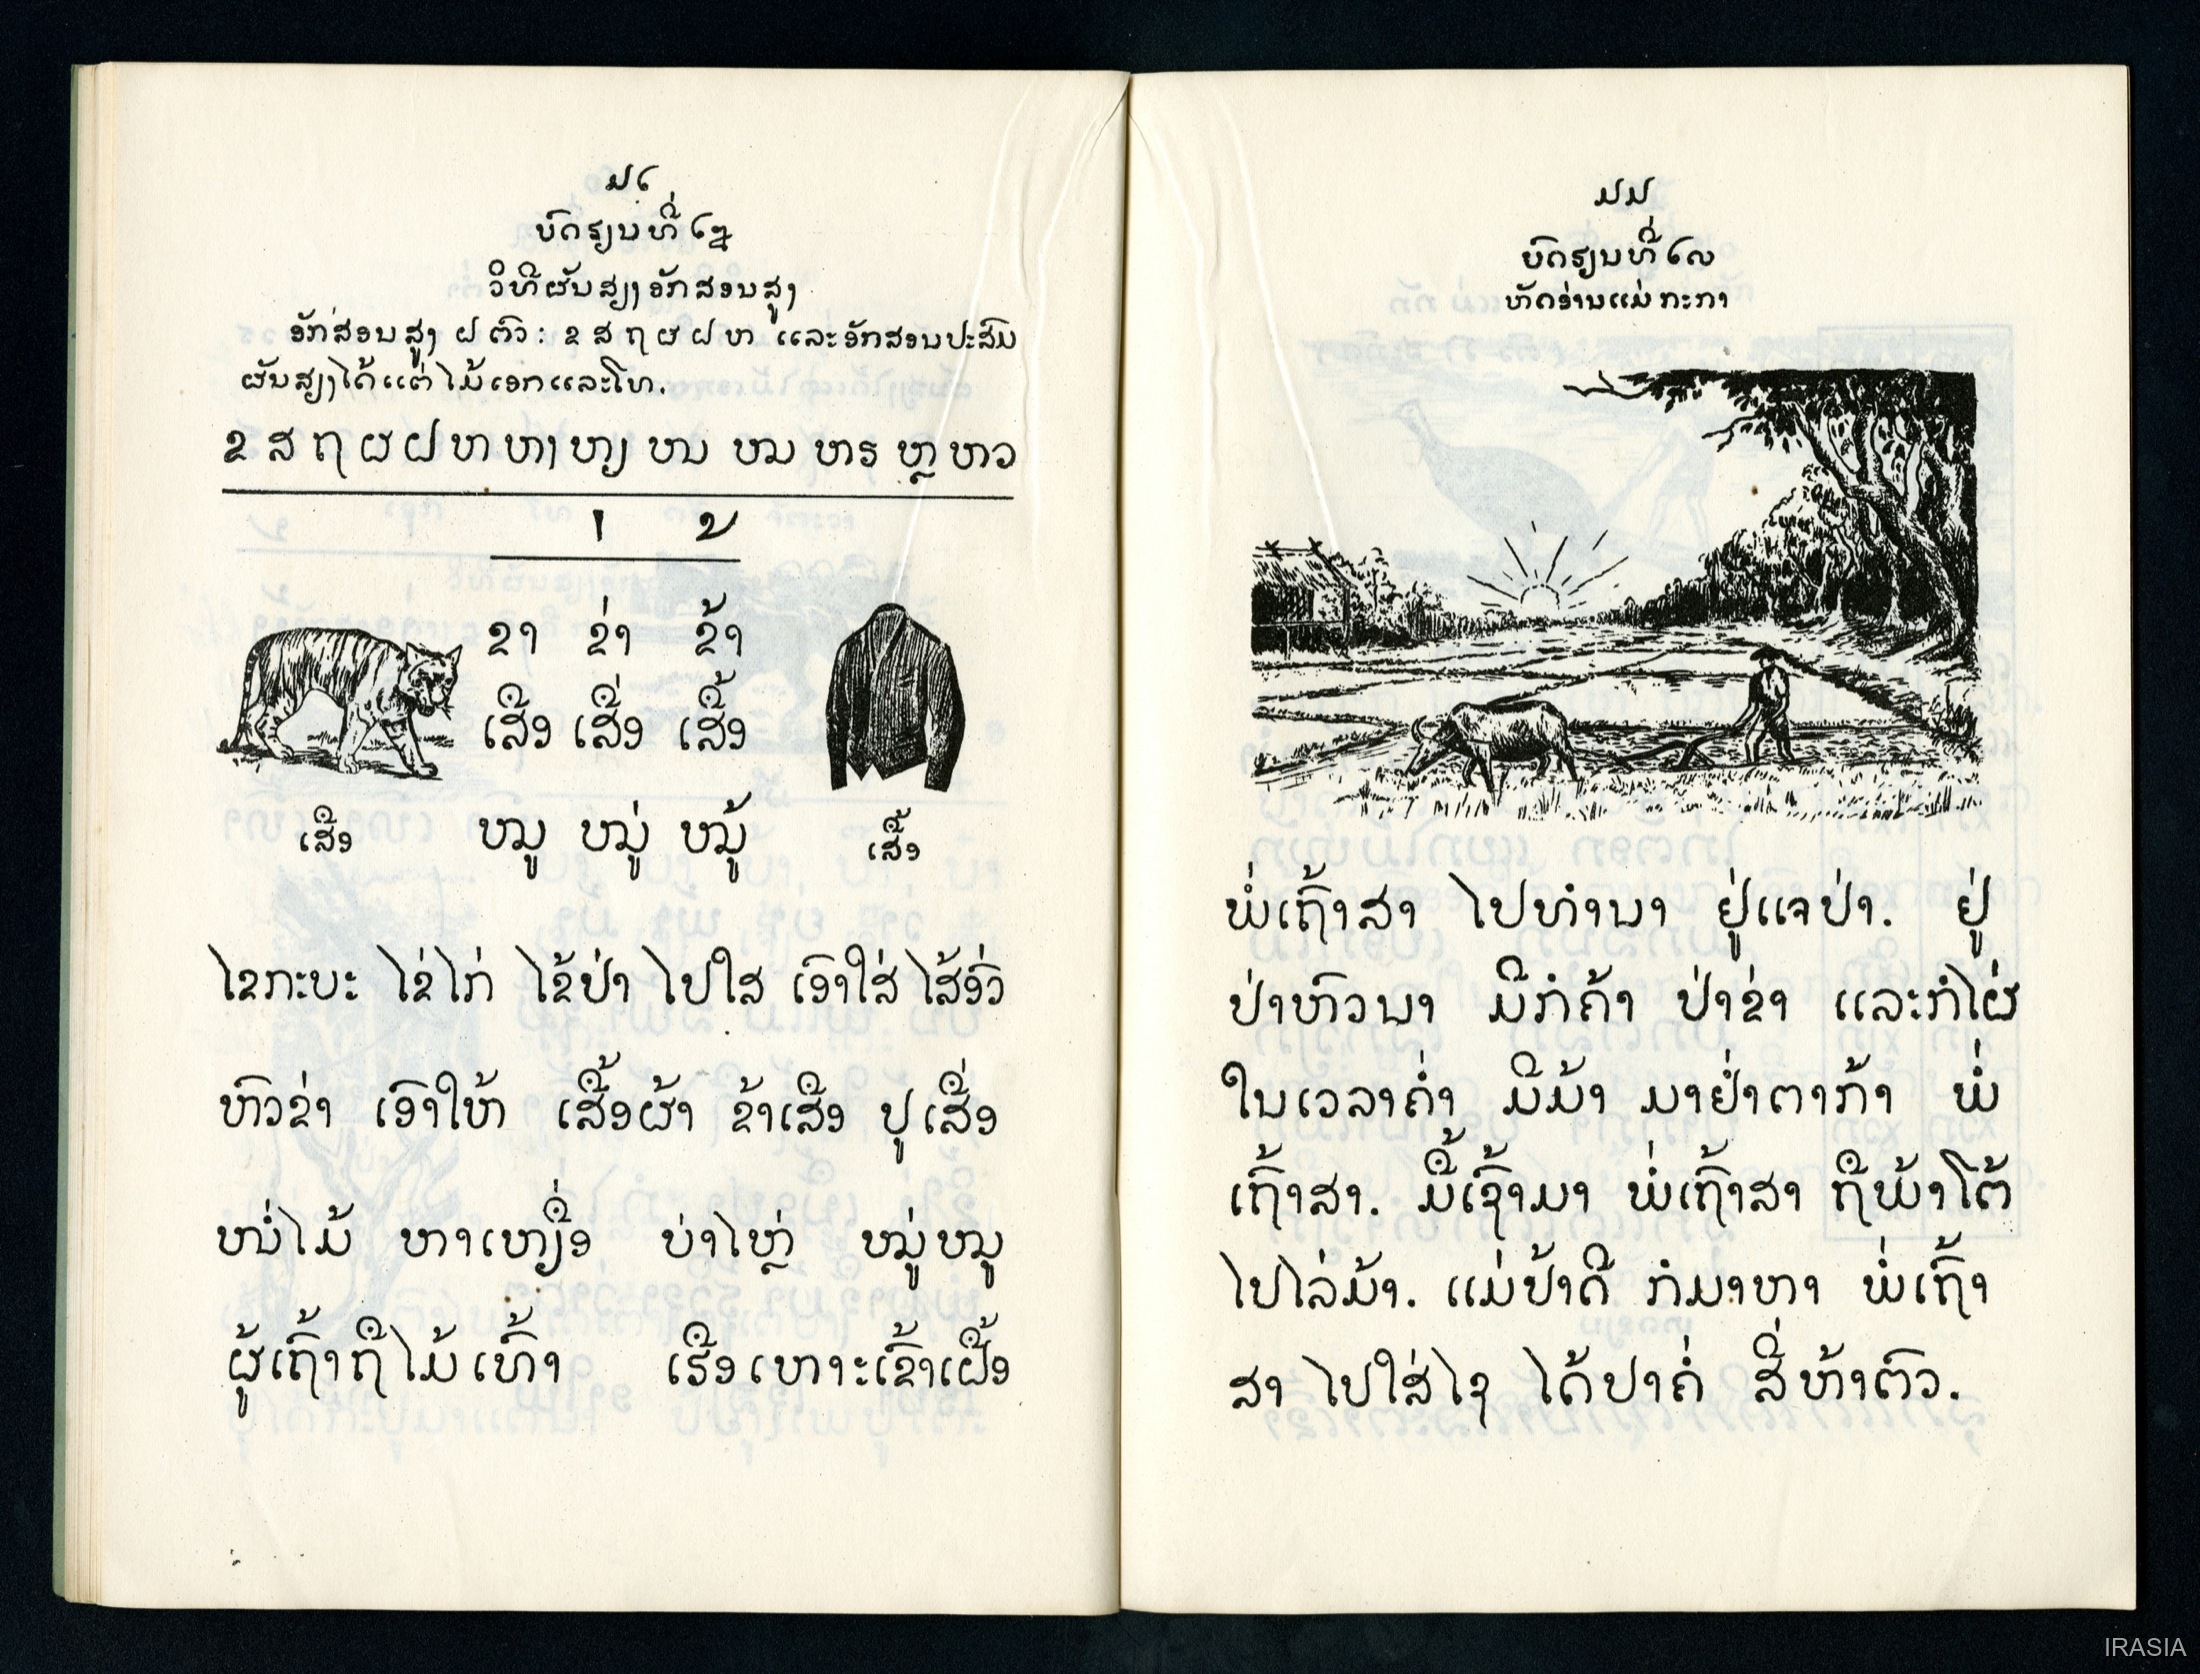 ໒໑
ບົດຮຽນທີ່ ໑໘
ວິທີຜັນສຽງອັກສອນສູງ
ອັກສ່ອນສູງ ໖ ຕົວ: ຂ ສ ຖ ຜ ຝ ຫ ແລະອັກສອນປະສົມ
ຜັນສຽງໄດ້ແຕ່ໄມ້ເອກແລະໂທ.
ຂ ສ ຖ ຜ ຝ ຫ ຫງ ຫຽ ໜ ໝ ຫຣ ຫຼ ຫວ
່ ້
ຂາ ຂ່າ ຂ້າ
ເສືອ ເສື່ອ ເສື້ອ
ໝູ ໝູ່ ໝູ້
ເສືອ
ເສື້ອ
ໄຂກະບະ ໄຂ່ໄກ່ ໄຂ້ປ່າ ໄປໃສ ເອົາໃສ່ ໄສ້ອົ່ວ
ຫົວຂ່າ ເອົາໃຫ້ ເສື້ອຜ້າ ຂ້າເສືອ ປູເສື່ອ
ໜໍ່ໄມ້ ຫາເຫຽື່ອ ບ່າໄຫຼ່ ໝູ່ໝູ
ຜູ້ເຖົ້າຖືໄມ້ເທົ້າ ເຮືອເຫາະເຂົ້າເຝືອ
໒໒
ບົດຮຽນທີ່ ໑໙
ຫັດອ່ານແມ່ ກະກາ
ພໍ່ເຖົ້າສາ ໄປທຳນາ ຢູ່ແຈປ່າ. ຢູ່
ປ່າຫົວນາ ມີກໍຄ້າ ປ່າຂ່າ ແລະກໍໄຜ່
ໃນເວລາຄ່ຳ ມີມ້າ ມາຢ່ຳຕາກ້າ ພໍ່
ເຖົ້າສາ. ມື້ເຊົ້າມາ ພໍ່ເຖົ້າສາ ຖືພ້າໂຕ້
ໄປໄລ່ມ້າ. ແມ່ປ້າດີ ກໍມາຫາ ພໍ່ເຖົ້າ
ສາ ໄປໃສ່ໄຊ ໄດ້ປາຄໍ່ ສີ່ຫ້າຕົວ.
IRASIA